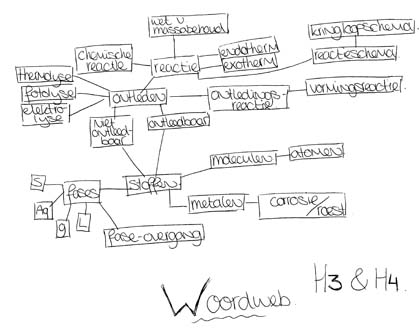 wet v
massabehoud
kringloopschema
chemische
reactie
reactie
endotherm
exotherm
reactieschema
thermolyse
fotolyse
elektro-
lyse
ontleden
ontledings-
reactie
vormingsreactie
niet
ontleed-
baar
ontleedbaar
moleculen
atomen
S
fases
stoffen
Aq
g
L
metalen
corrosie/
roest
fase-overgang
Woordweb.
H3 & H4.